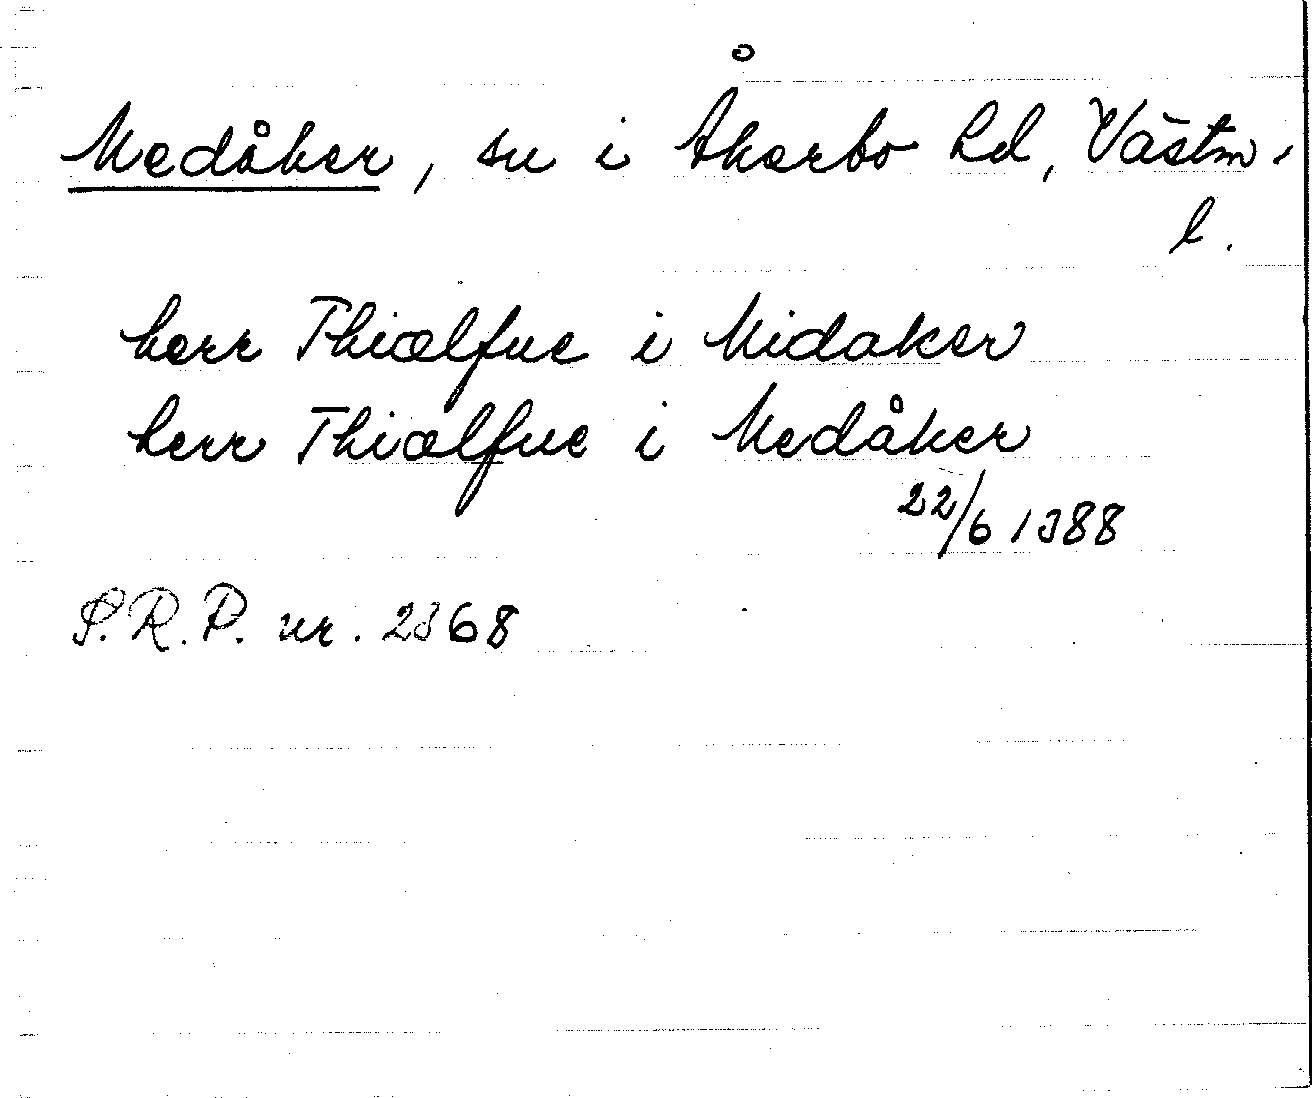 Medåker, sn i Åkerbo hd, Västm.
l.
herr Thiælfue i Midaker
herr Thiælfue i Medåker
22/6 1388
S.R.P. nr. 2368